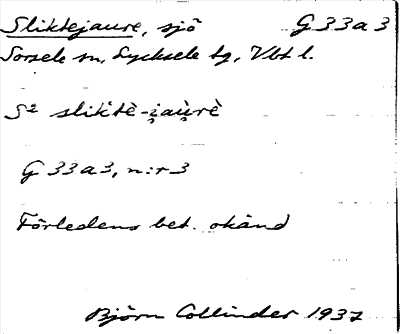 Sliktejaure, sjö G 33 a 3
Sorsele sn, Lycksele tg, Vbt l.
S² sliktè-i̯au̯rè
G 33 a 3, n:r 3
Förledens bet. okänd
Björn Collinder 1937